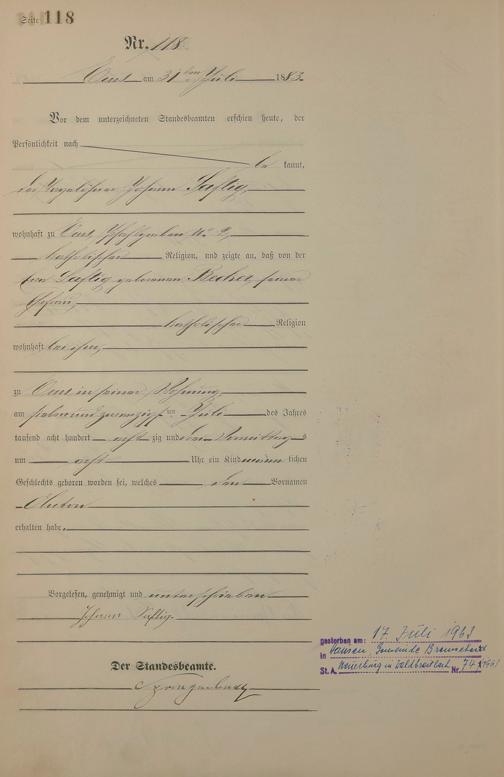 Seite 118
Nr. 118
am 31ten Juli 1883
Vor dem unterzeichneten Standesbeamten erschien heute, der
Persönlichkeit nach
be kannt,
der Johann Saftig,
wohnhaft zu No 2,
katholischer Religion, und zeigte an, daß von der
Saftig geborenen Becker, seiner
Ehefrau,
katholischer Religion
wohnhaft bei ihm,
zu in seiner Wohnung
am siebenundzwanzigsten Juli des Jahres
tausend acht hundert acht zig und drei Vormittags
um acht Uhr ein Kind männ lichen
Geschlechts geboren worden sei, welches den Vornamen
Anton
erhalten habe.
Vorgelesen, genehmigt und unterschrieben
Johann Saftig.
Der Standesbeamte.
gestorben am: 17. Juli 1963
in Hausen, Gemeinde
St. A. Waldbreitbach Nr. 74/1963